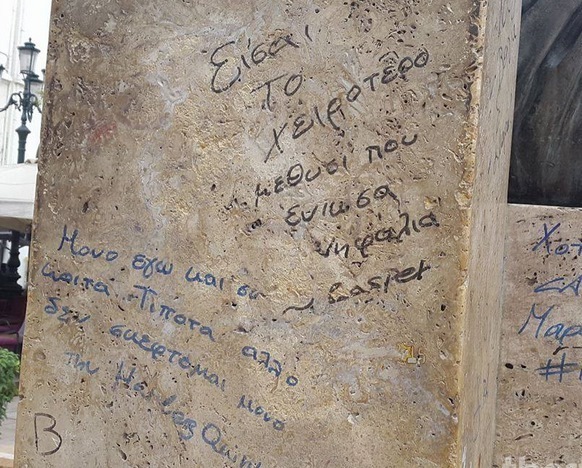 Είσαι
Το
χειρότερο
μεθυσι που
ενιωσα
νηφαλια
~ Casper
Μονο εγω και συ
κοιτα Τιποτα αλλο
δεν σκεφτομαι μονο
την Harley Quinn
B
Χοτ
Μαρ